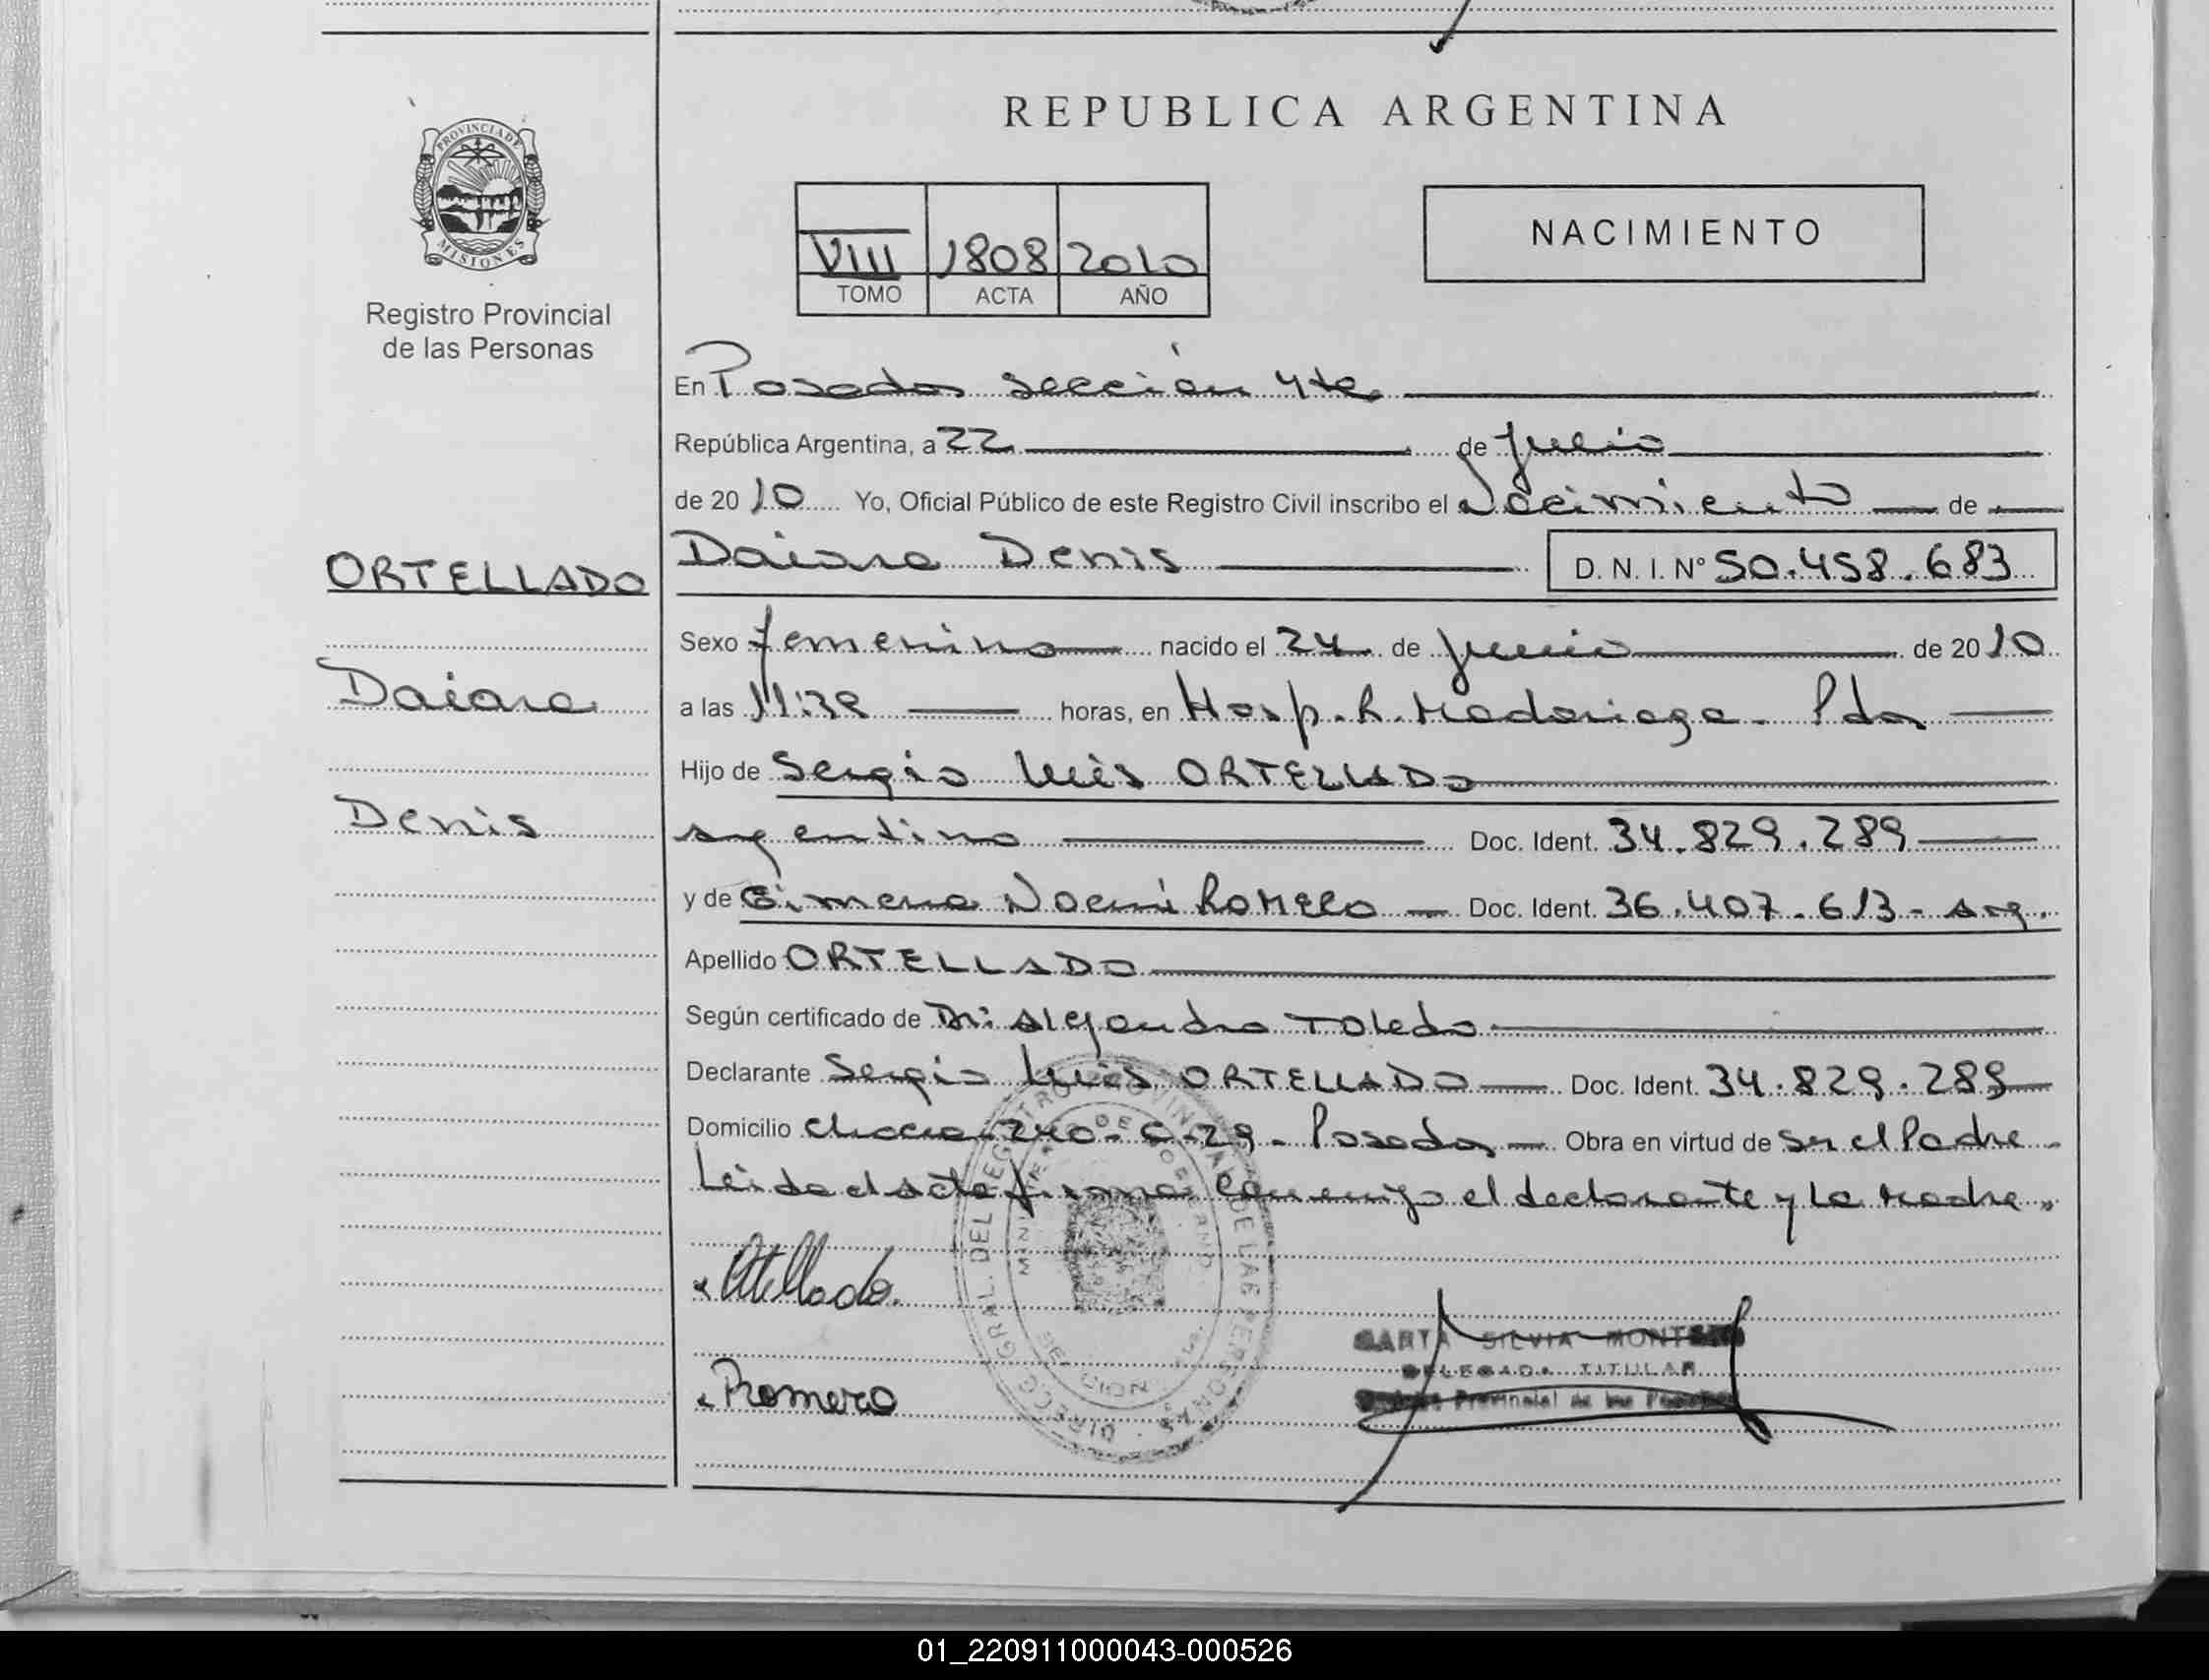 REPUBLICA ARGENTINA
PROVINCIA DE
MISIONES
Registro Provincial
de las Personas
VIII 1808 2010
TOMO ACTA AÑO
NACIMIENTO
En Posadas sección 4ta
República Argentina, a 22 de Julio
de 2010 Yo, Oficial Público de este Registro Civil inscribo el Nacimiento de
ORTELLADO
Daiana Denis D. N. I. N° 50.458.683
Sexo femenino nacido el 24 de Junio de 2010
Daiana
a las 11:38 horas, en Hosp. R. Madariaga - Pdas
Hijo de Sergio Luis ORTELLADO
Denis
argentino Doc. Ident. 34.829.289
y de Gimena Noemi ROMERO Doc. Ident. 36.407.613 - arg.
Apellido ORTELLADO
Según certificado de Dr: Alejandro Toledo
Declarante Sergio Luis ORTELLADO Doc. Ident. 34.829.289
Domicilio Chacra 240 - C - 29 - Posadas Obra en virtud de ser el Padre
Leida el acta firman conmigo el declarante y la Madre
Ortellado.
Romero
SILVIA
DELEGADA TITULAR
Provincial de las
01_220911000043-000526